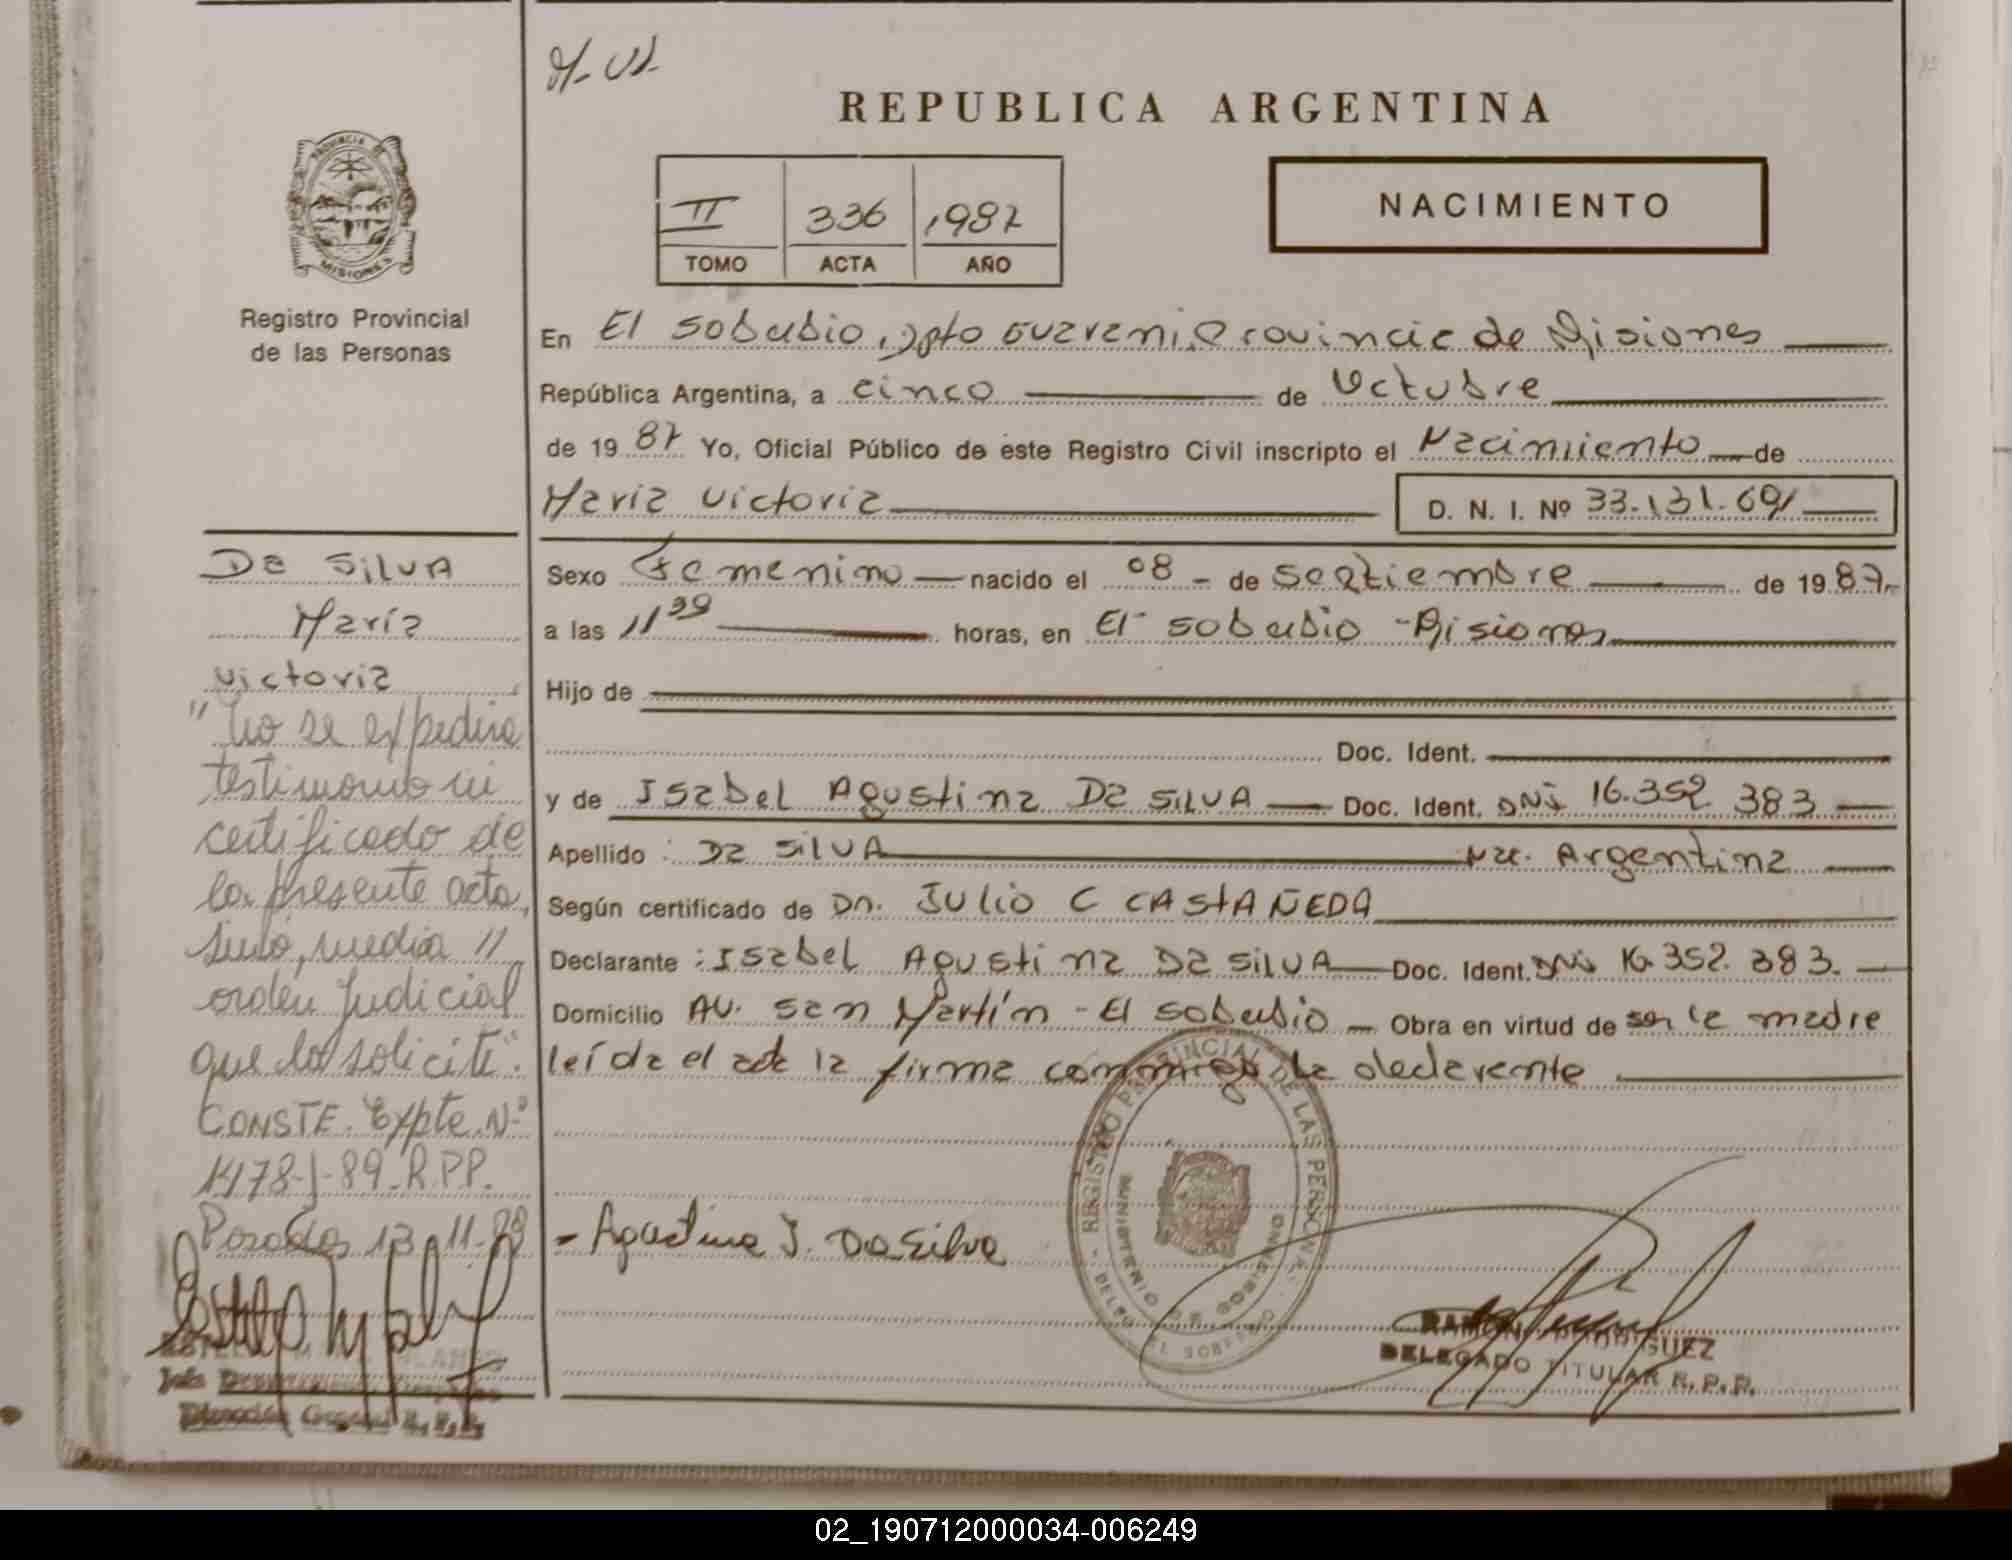 REPUBLICA ARGENTINA
II 336 1987
TOMO ACTA AÑO
NACIMIENTO
PROVINCIA DE
MISIONES
Registro Provincial
de las Personas
En El soberbio, Dpto Guarani, Provincia de Misiones
República Argentina, a cinco de Octubre
de 1987 Yo, Oficial Público de este Registro Civil inscripto el Nacimiento de
Maria Victoria D. N. I. Nº 33.131.691
Sexo Femenino nacido el 08 - de Septiembre de 1987
a las 11 39 horas, en El soberbio - Misiones
Hijo de
Doc. Ident.
y de Isabel Agustina Da SILVA Doc. Ident. DNI 16.352 383
Apellido : Da SILVA Nac. Argentina
Según certificado de Dn. JULIO C CASTAÑEDA
Declarante : Isabel Agustina Da SILVA Doc. Ident. DNI 16.352. 383.
Domicilio AV. San Martín - El soberbio - Obra en virtud de ser la madre
leída el acta la firma conmigo la declarante
DA SILVA
María
Victoria
"No se expedira
testimonio ni
certificado de
la presente acta,
sino, media //
orden judicial
que lo solicite".
CONSTE. Expte. Nº
1478-J-89-R.P.P.
Posadas 13-11-89
Dirección General R.P.P.
- Agustina I. Da Silva
REGISTRO PROVINCIAL DE LAS PERSONAS
MINISTERIO DE GOBIERNO
RAMON RODRIGUEZ
DELEGADO TITULAR R.P.P.
02_190712000034-006249